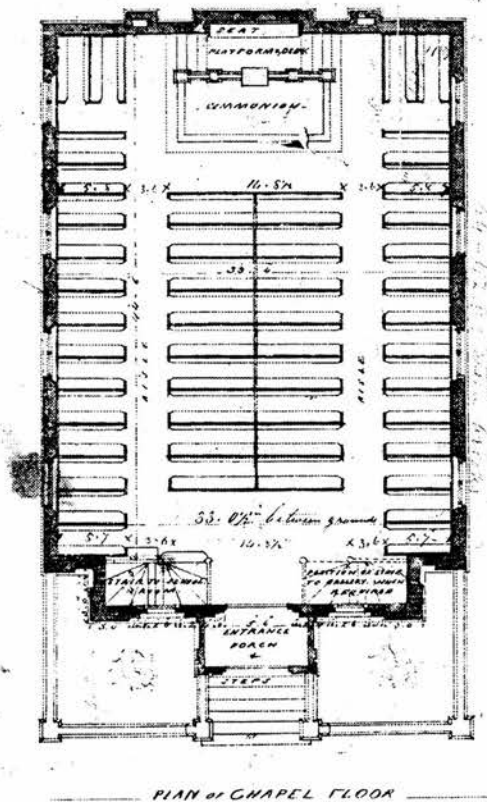 SEAT
PLATFORM & DESK
COMMUNION
5.3 3.6 14.5½ 3.6 5.4
33.4
44.6
AISLE
AISLE
33.0½ between grounds
5.7 3.6 14.3½ 3.6 5.7
STAIR TO SCHOOL
ROOM
POSITION OF STAIR
TO GALLERY WHEN
REQUIRED
5.6
ENTRANCE
PORCH
STEPS
PLAN OF CHAPEL FLOOR